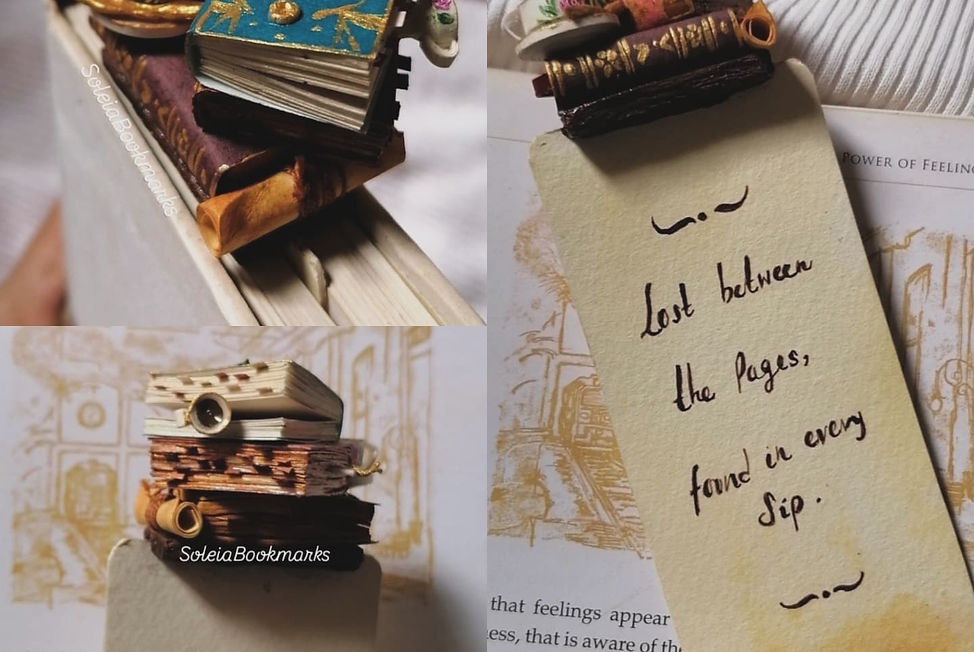 SoleiaBookmarks
SoleiaBookmarks
POWER OF FEELING
Lost between
the Pages,
found in every
Sip.
that feelings appear
ness, that is aware of the